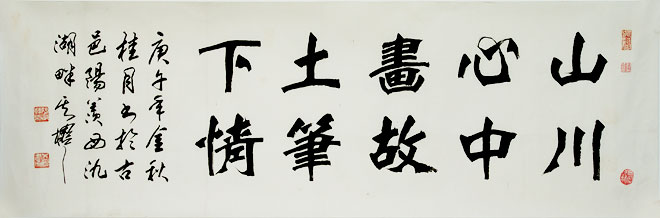 山川
心中
畫故
土筆
下情
庚午年金秋
桂月书於古
邑陽羨西氿
湖畔